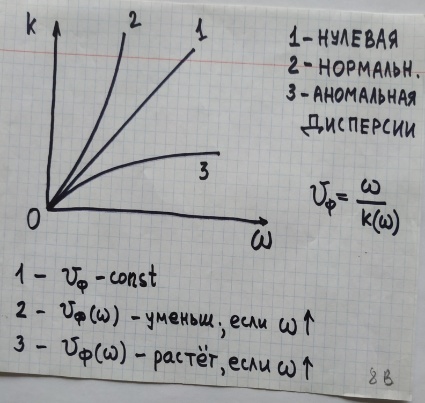 k
2
1
3
0
ω
1 - НУЛЕВАЯ
2 - НОРМАЛЬН.
3 - АНОМАЛЬНАЯ
ДИСПЕРСИИ
υф = ω / k(ω)
1 - υф - const
2 - υф(ω) - уменьш., если ω↑
3 - υф(ω) - растёт, если ω↑
8В